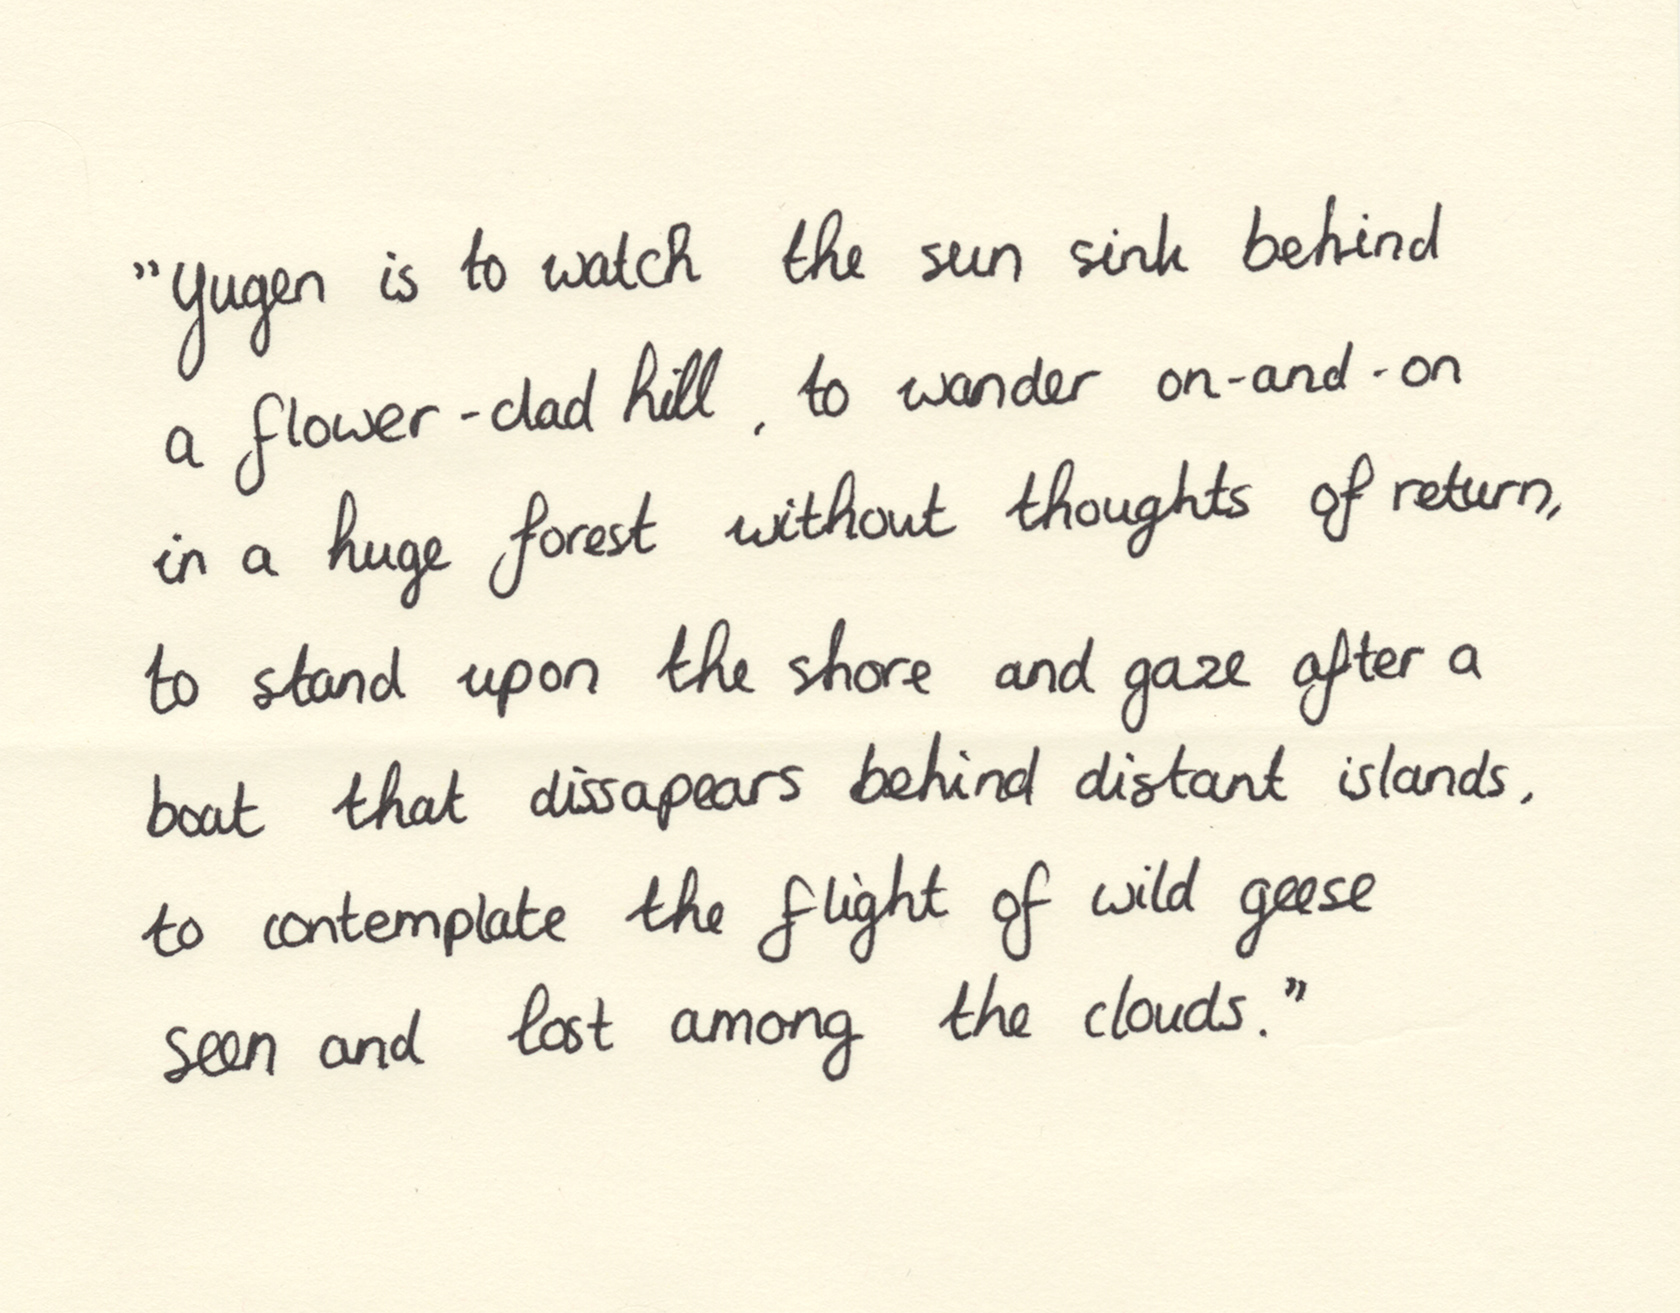 ”Yugen is to watch the sun sink behind
a flower-clad hill, to wander on-and-on
in a huge forest without thoughts of return,
to stand upon the shore and gaze after a
boat that dissapears behind distant islands,
to contemplate the flight of wild geese
seen and lost among the clouds.”